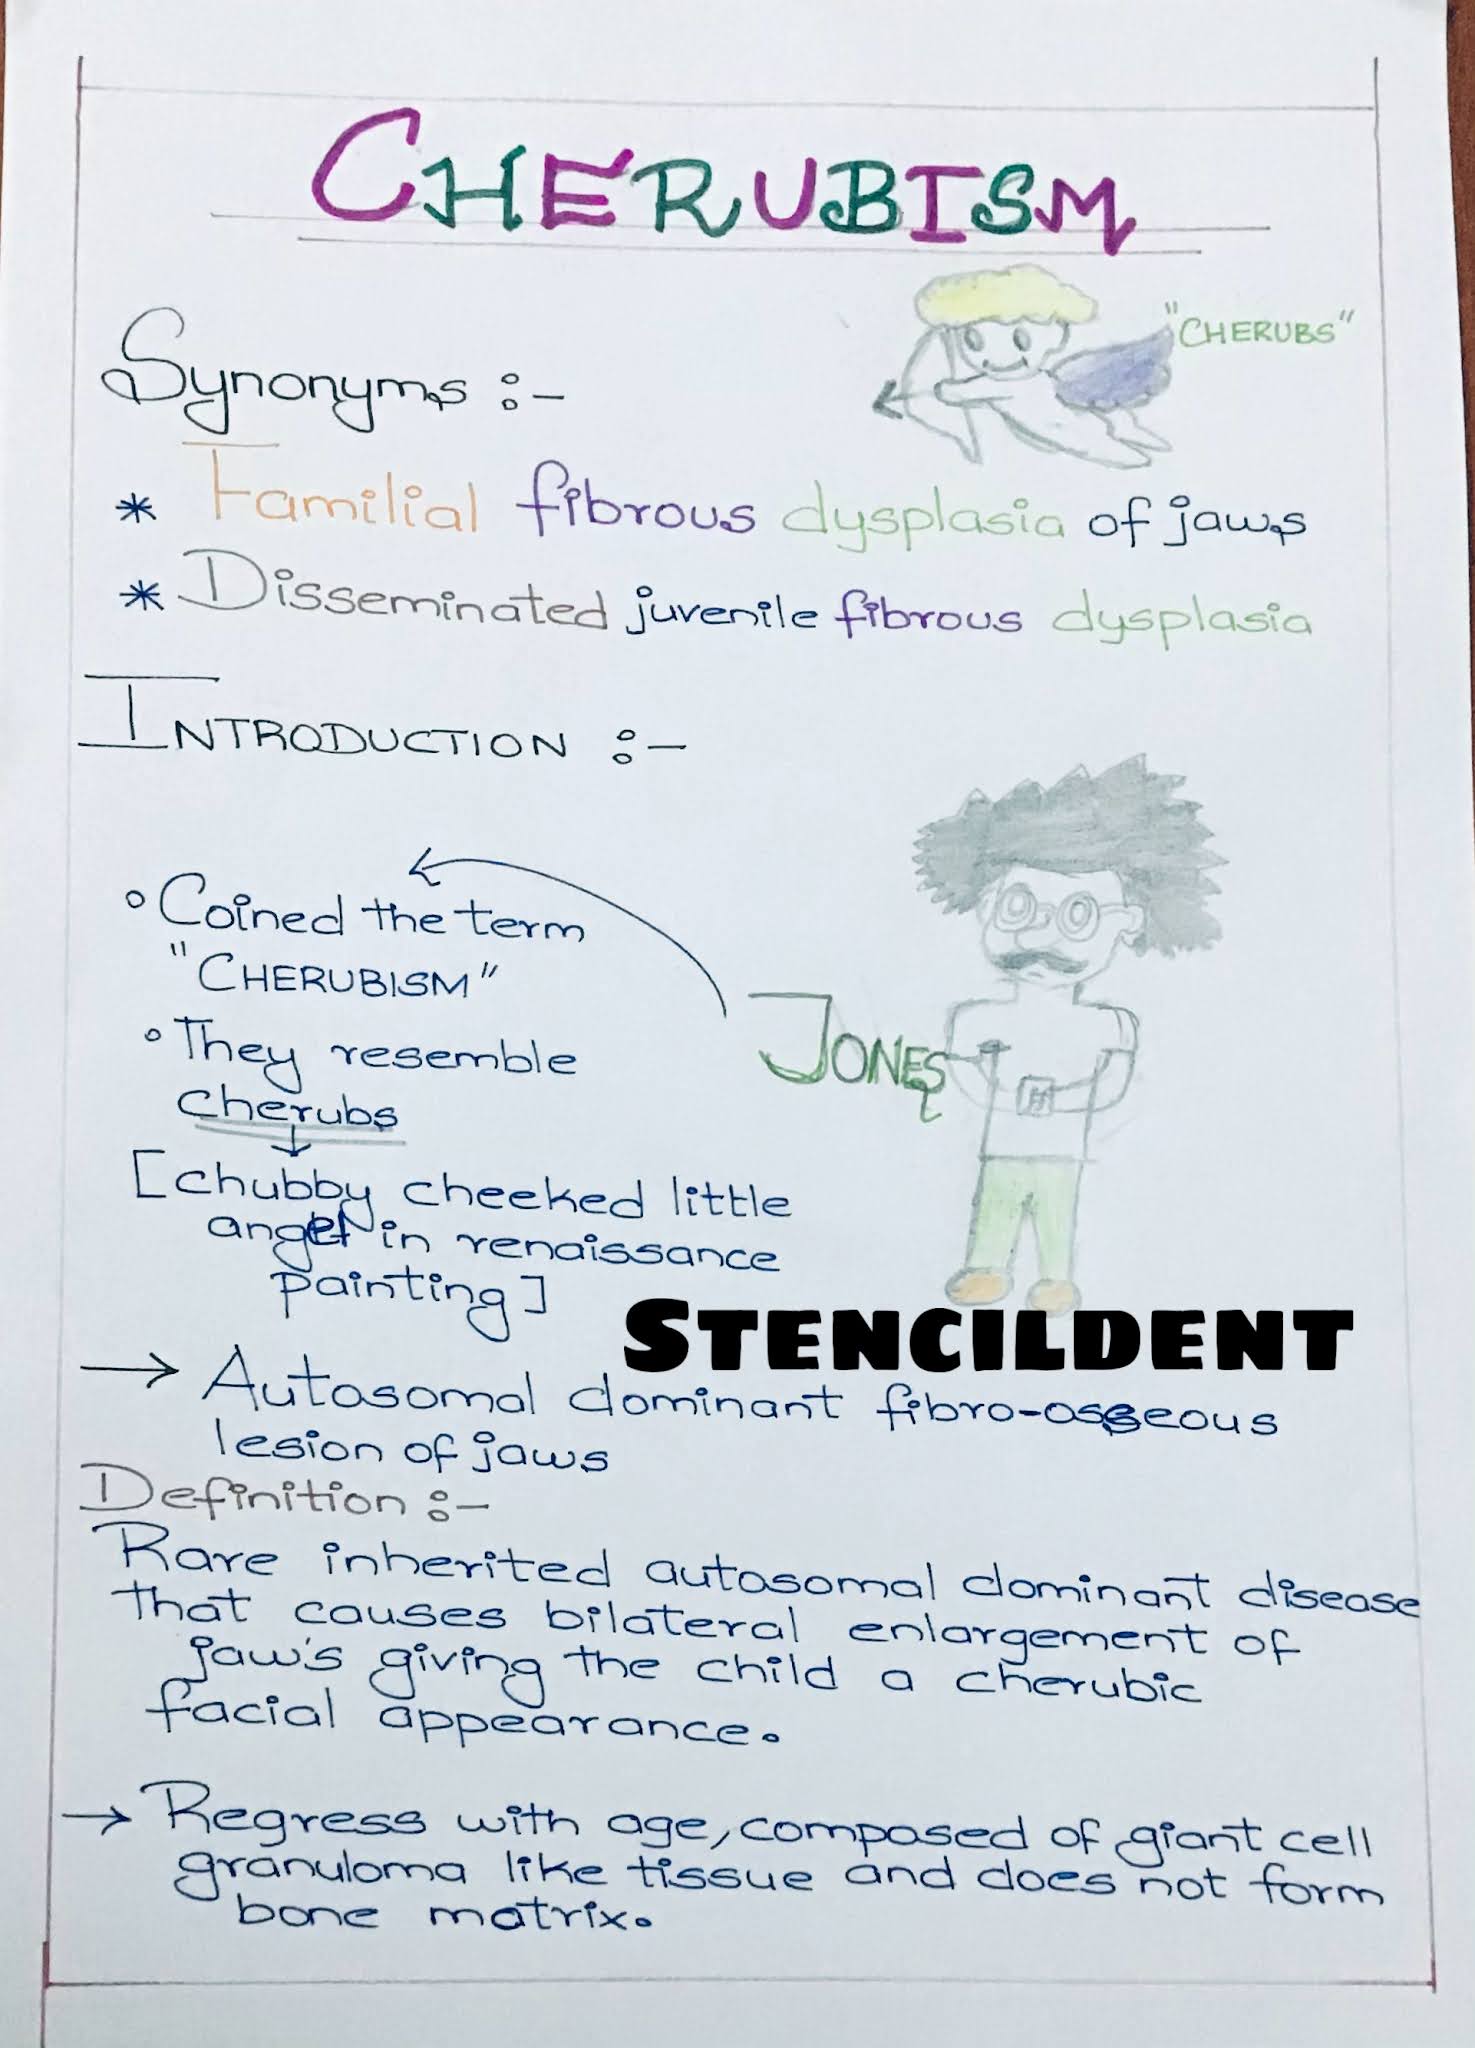 CHERUBISM
"CHERUBS"
Synonyms :-
* Familial fibrous dysplasia of jaws
* Disseminated juvenile fibrous dysplasia
INTRODUCTION :-
• Coined the term
"CHERUBISM"
JONES
• They resemble
cherubs
[chubby cheeked little
angel in renaissance
painting]
STENCILDENT
→ Autosomal dominant fibro-osseous
lesion of jaws
Definition :-
Rare inherited autosomal dominant disease
that causes bilateral enlargement of
jaw's giving the child a cherubic
facial appearance.
→ Regress with age, composed of giant cell
granuloma like tissue and does not form
bone matrix.